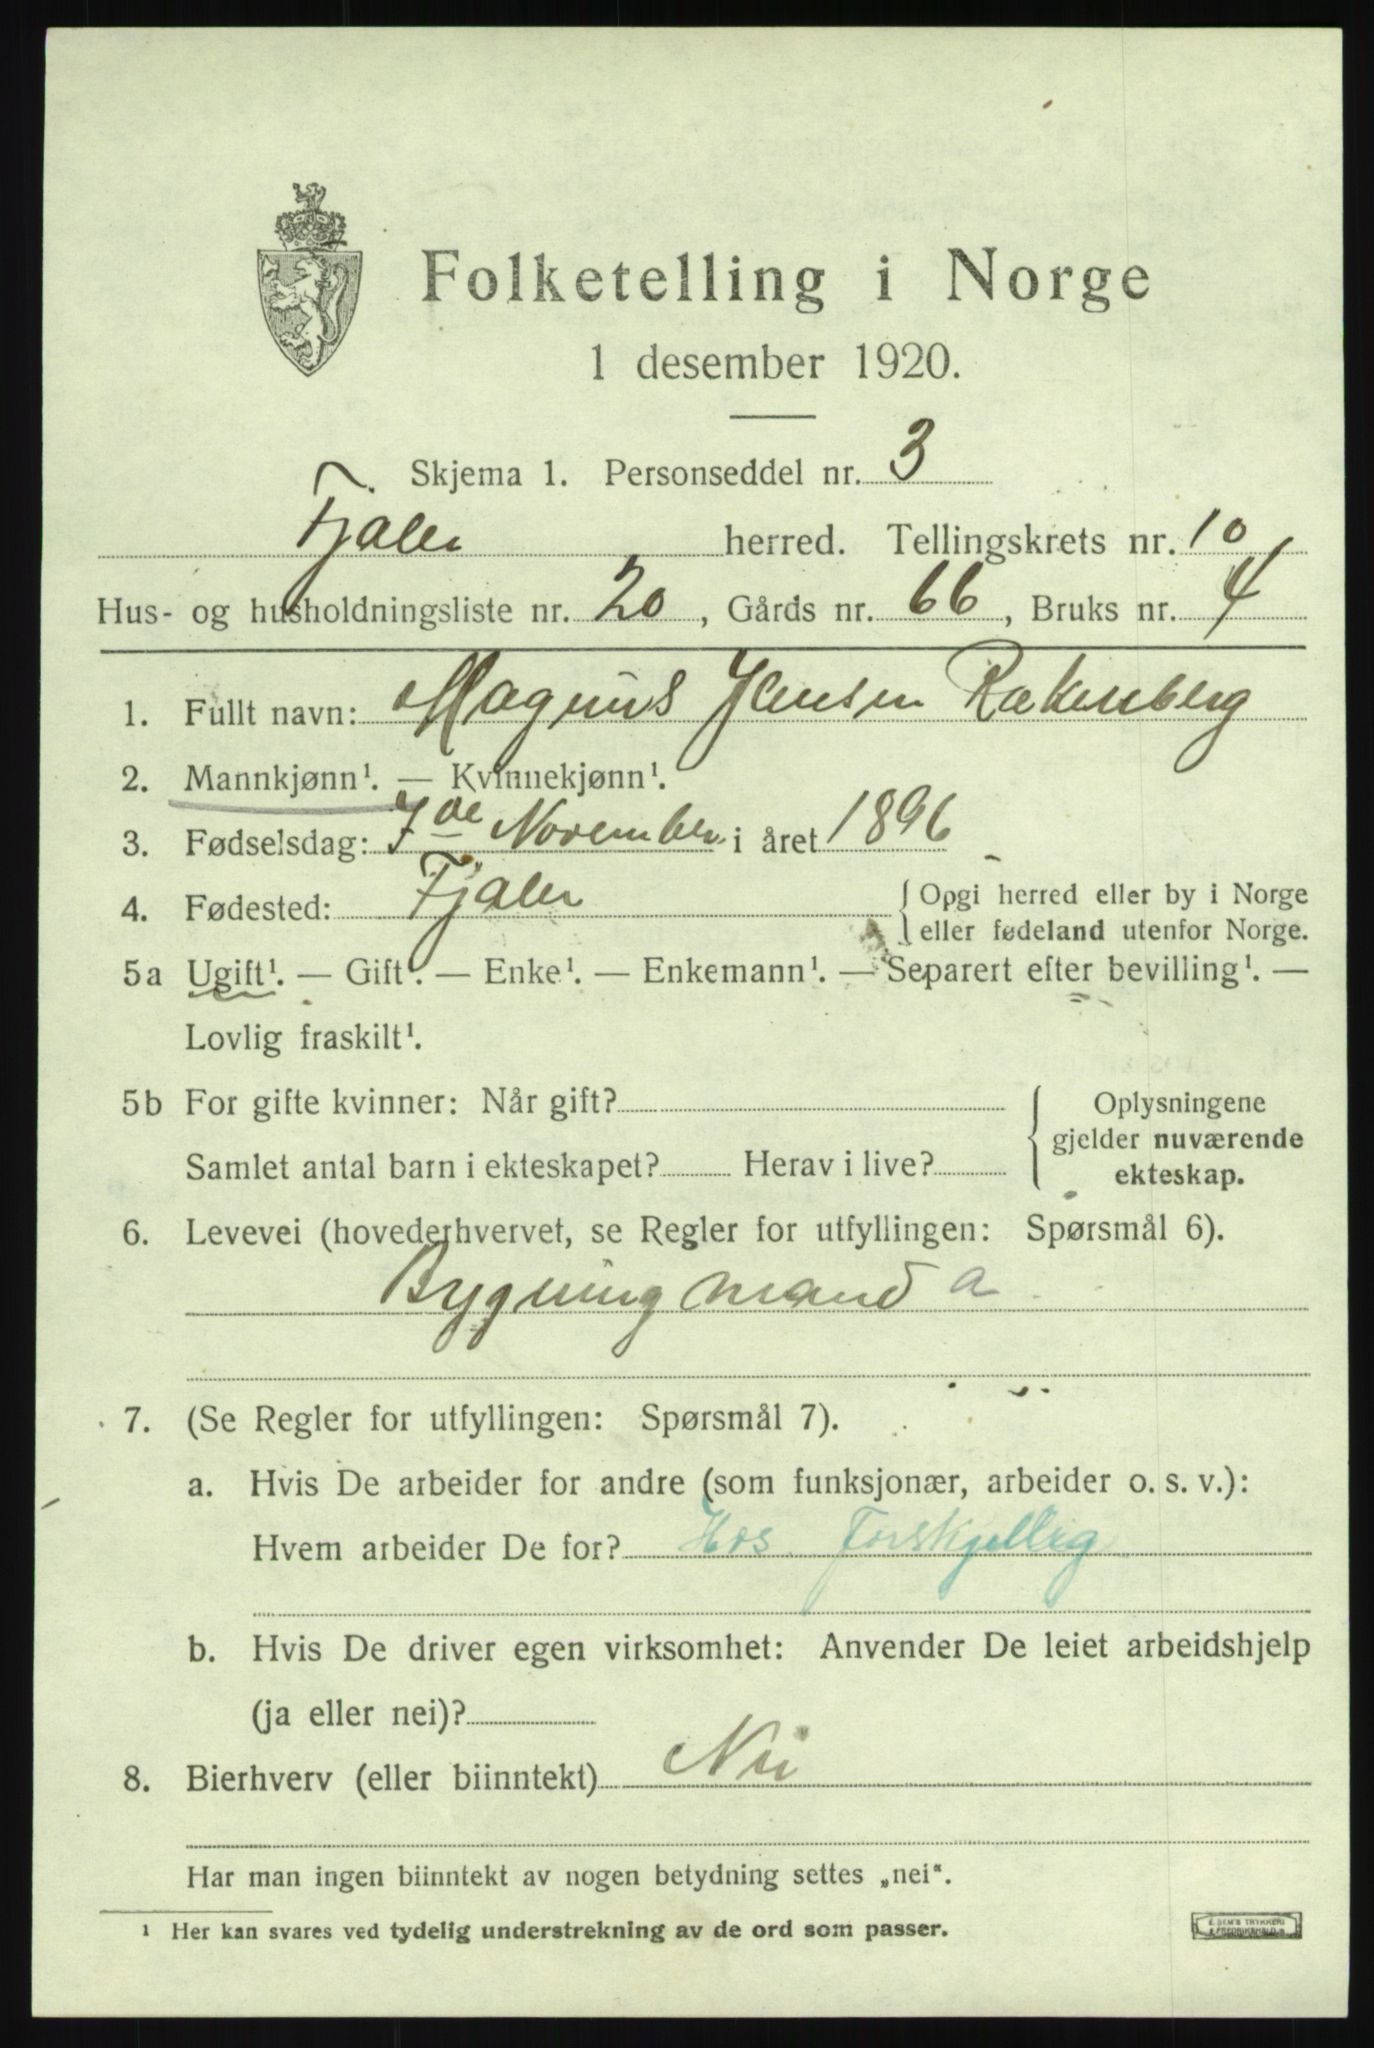 Folketelling i Norge
1 desember 1920.
Skjema 1. Personseddel nr. 3
Fjaler herred. Tellingskrets nr. 10
Hus- og husholdningsliste nr. 20, Gårds nr. 66, Bruks nr. 4
1. Fullt navn: Magnus Jensen Rakenberg
2. Mannkjønn¹. — Kvinnekjønn¹.
3. Fødselsdag: 7de November i året 1896
4. Fødested: Fjaler { Opgi herred eller by i Norge
eller fødeland utenfor Norge.
5a Ugift¹. — Gift¹. — Enke¹. — Enkemann¹. — Separert efter bevilling¹. —
Lovlig fraskilt¹.
5b For gifte kvinner: Når gift? { Oplysningene
gjelder nuværende
Samlet antal barn i ekteskapet? Herav i live? ekteskap.
6. Levevei (hovederhvervet, se Regler for utfyllingen: Spørsmål 6).
Bygningmand a
7. (Se Regler for utfyllingen: Spørsmål 7).
a. Hvis De arbeider for andre (som funksjonær, arbeider o. s. v.):
Hvem arbeider De for? Hos Forskjellig
b. Hvis De driver egen virksomhet: Anvender De leiet arbeidshjelp
(ja eller nei)?
8. Bierhverv (eller biinntekt) Nei
Har man ingen biinntekt av nogen betydning settes „nei“.
¹ Her kan svares ved tydelig understrekning av de ord som passer.